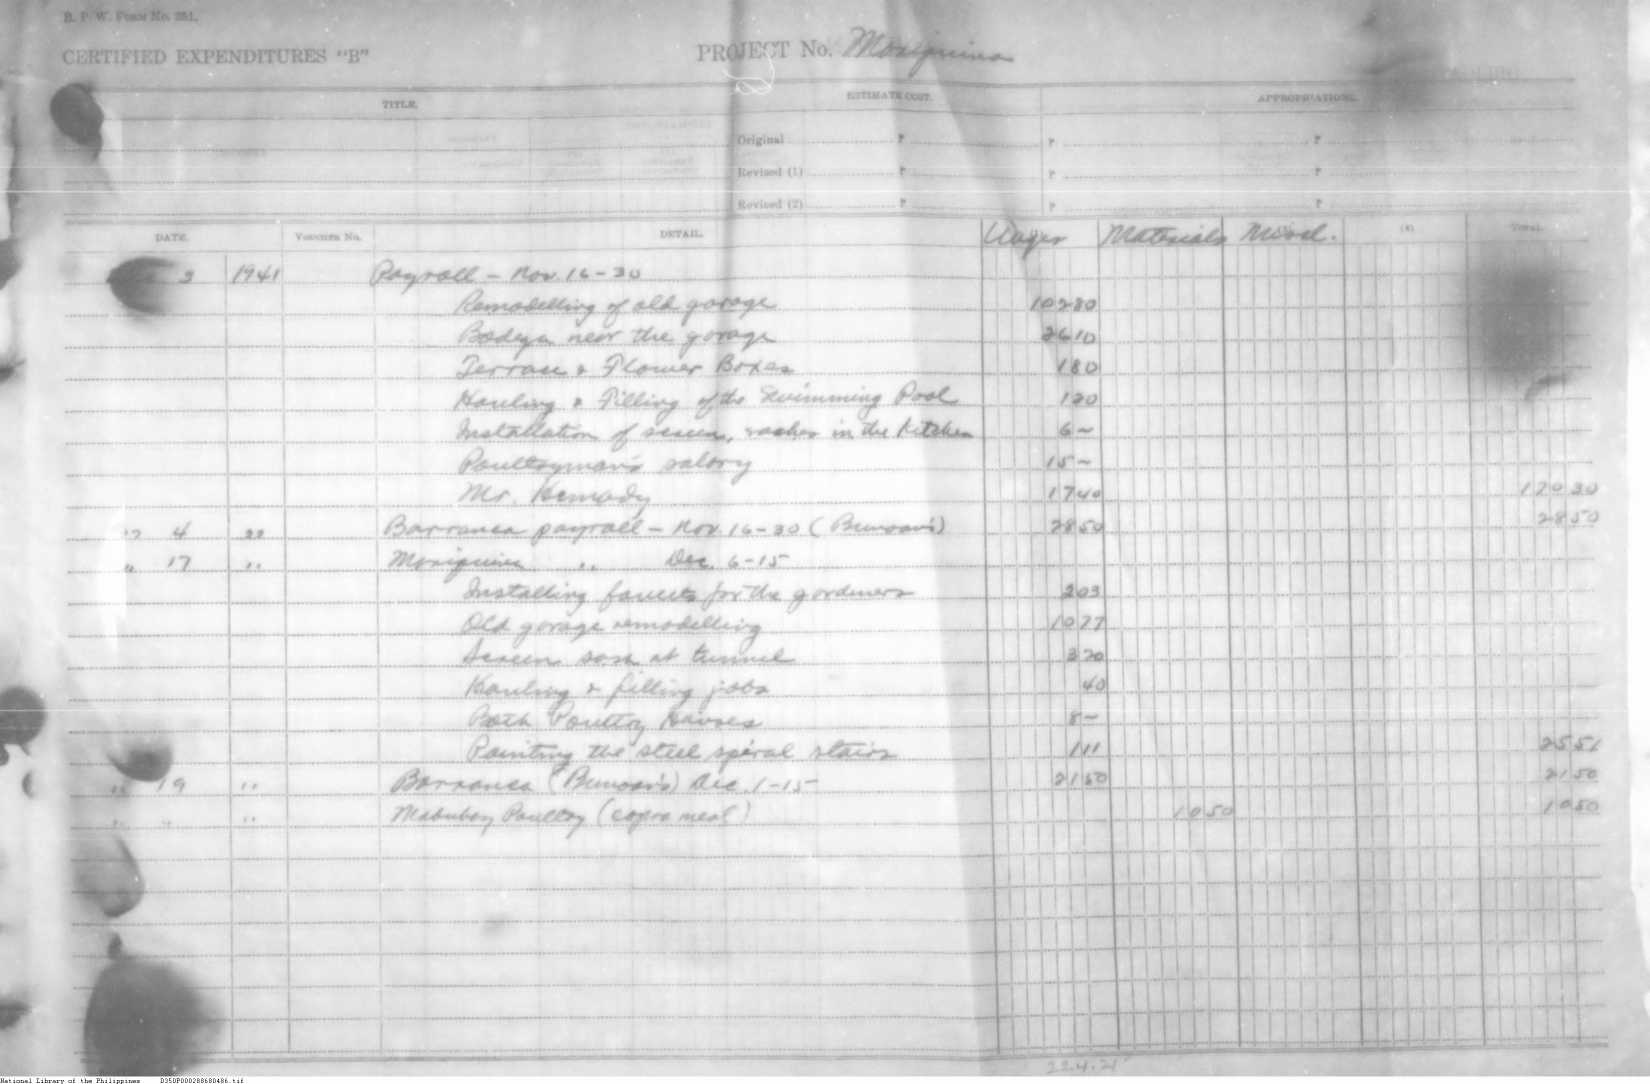 B. P. W. Form No. 251.
CERTIFIED EXPENDITURES "B" PROJECT No. Mariquina
TITLE. ESTIMATE COST. APPROPRIATIONS.
Original ₱ ₱ ₱
Revised (1) ₱ ₱ ₱
Revised (2) ₱ ₱ ₱
DATE. VOUCHER No. DETAIL. Wages Materials Miscel. (4) Total.
3 1941 Payroll - Nov. 16-30
Remodelling of old garage 10280
Bodega near the garage 2610
Terrace & Flower Boxes 180
Hauling & Filling of the Swimming Pool 120
Installation of screen, in the Kitchen 6-
Poultryman's salary 15-
Mr. Kemady 1740 17030
" 4 " Barranca payroll - Nov. 16-30 (Bunoan's) 2850 2850
" 17 " Mariquina " Dec. 6-15
Installing faucets for the gardeners 203
Old garage remodelling 1077
Screen sash at tunnel 320
Hauling & filling jobs 40
Both Poultry Houses 8-
Painting the steel spiral stairs 111 2551
" 19 " Barranca (Bunoan's) Dec. 1-15 2150 2150
" " " Mabuhay Poultry (copra meal) 1050 1050
224.21
National Library of the Philippines D350P000288680486.tif